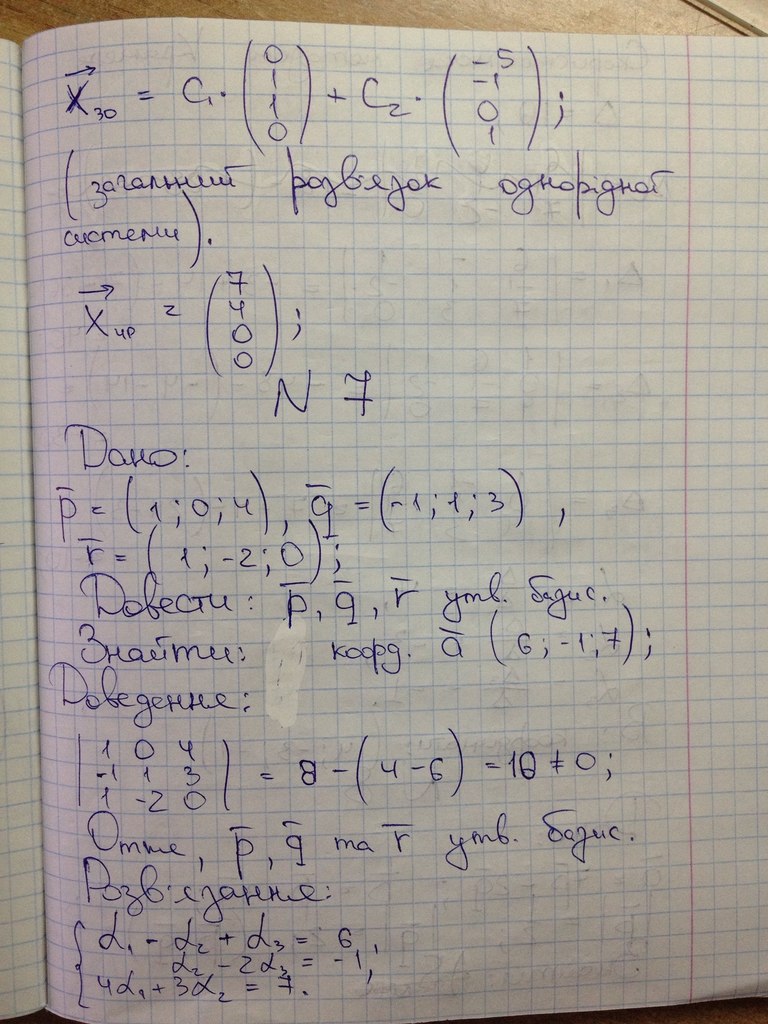 X⃗зо = C₁ · (0 1 1 0) + C₂ · (-5 -1 0 1) ;
(загальний розв'язок однорідної
системи).
X⃗чр = (7 4 0 0) ;
N 7
Дано:
p̅ = (1; 0; 4), q̅ = (-1; 1; 3) ,
r̅ = (1; -2; 0);
Довести: p̅, q̅, r̅ утв. базис.
Знайти: коорд. a̅ (6; -1; 7);
Доведення:
| 1 0 4 |
| -1 1 3 | = 8 - (4 - 6) = 10 ≠ 0;
| 1 -2 0 |
Отже, p̅, q̅ та r̅ утв. базис.
Розв'язання:
{ α₁ - α₂ + α₃ = 6 ;
α₂ - 2α₃ = -1;
4α₁ + 3α₂ = 7.